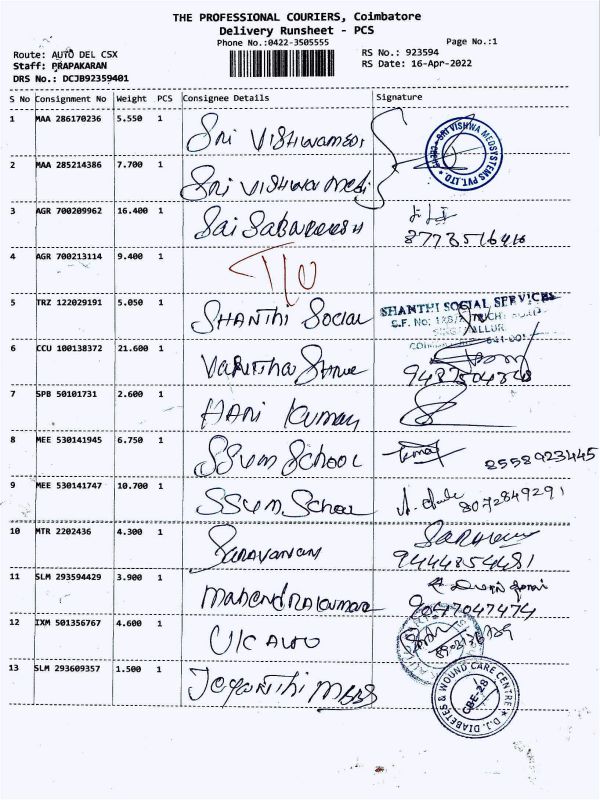 THE PROFESSIONAL COURIERS, Coimbatore
Delivery Runsheet - PCS
Phone No.:0422-3505555
Page No.:1
Route: AUTO DEL CSX
RS No.: 923594
Staff: PRAPAKARAN
RS Date: 16-Apr-2022
DRS No.: DCJB92359401
S No Consignment No Weight PCS Consignee Details Signature
1 MAA 286170236 5.550 1 Sri Vishwamedi
SRI VISHWA MEDSYSTEMS PVT.LTD.
2 MAA 285214386 7.700 1 Sri Vishwa Medi
3 AGR 700209962 16.400 1 Sai Sabareesh
8778516416
4 AGR 700213114 9.400 1
5 TRZ 122029191 5.050 1 SHANTHI Social
SHANTHI SOCIAL SERVICES
S.F. No:
6 CCU 100138372 21.600 1
7 SPB 50101731 2.600 1 HARI Kumar
8 MEE 530141945 6.750 1 SSVM SCHOOL
8558923445
9 MEE 530141747 10.700 1 SSVM School
8072849291
10 MTR 2202436 4.300 1 SARAVANAN
9444854481
11 SLM 293594429 3.900 1 MAHENDRAKUMAR
12 IXM 501356767 4.600 1 UK AUTO
13 SLM 293609357 1.500 1 Jeyanthi MBBS
D.J. DIABETES & WOUND CARE CENTRE
CBE-28